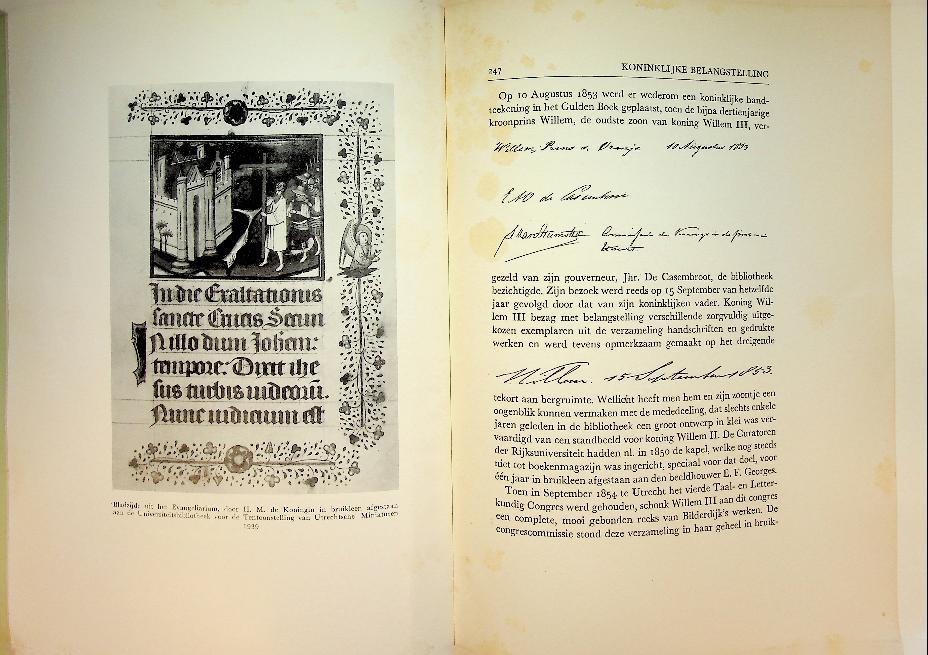 In die Exaltationis
sancte Crucis Secun
N illo dium Johan:
tempore: Dixit ihe
sus turbis iudeoru.
Nunc iudicium est
Bladzijde uit het Evangeliarium, door H. M. de Koningin in bruikleen afgestaan
aan de Universiteitsbibliotheek voor de Tentoonstelling van Utrechtsche Miniaturen
1939
247 KONINKLIJKE BELANGSTELLING
Op 10 Augustus 1853 werd er wederom een koninklijke hand-
teekening in het Gulden Boek geplaatst, toen de bijna dertienjarige
kroonprins Willem, de oudste zoon van koning Willem III, ver-
Willem, Prins v. Oranje 10 Augustus 1853
de Casembroot
gezeld van zijn gouverneur, Jhr. De Casembroot, de bibliotheek
bezichtigde. Zijn bezoek werd reeds op 15 September van hetzelfde
jaar gevolgd door dat van zijn koninklijken vader. Koning Wil-
lem III bezag met belangstelling verschillende zorgvuldig uitge-
kozen exemplaren uit de verzameling handschriften en gedrukte
werken en werd tevens opmerkzaam gemaakt op het dreigende
Willem. 15 September 1853.
tekort aan bergruimte. Wellicht heeft men hem en zijn zoontje een
oogenblik kunnen vermaken met de mededeeling, dat slechts enkele
jaren geleden in de bibliotheek een groot ontwerp in klei was ver-
vaardigd van een standbeeld voor koning Willem II. De Curatoren
der Rijksuniversiteit hadden nl. in 1850 de kapel, welke nog steeds
niet tot boekenmagazijn was ingericht, speciaal voor dat doel, voor
één jaar in bruikleen afgestaan aan den beeldhouwer E. F. Georges.
Toen in September 1854 te Utrecht het vierde Taal- en Letter-
kundig Congres werd gehouden, schonk Willem III aan dit congres
een complete, mooi gebonden reeks van Bilderdijk's werken. De
congrescommissie stond deze verzameling in haar geheel in bruik-